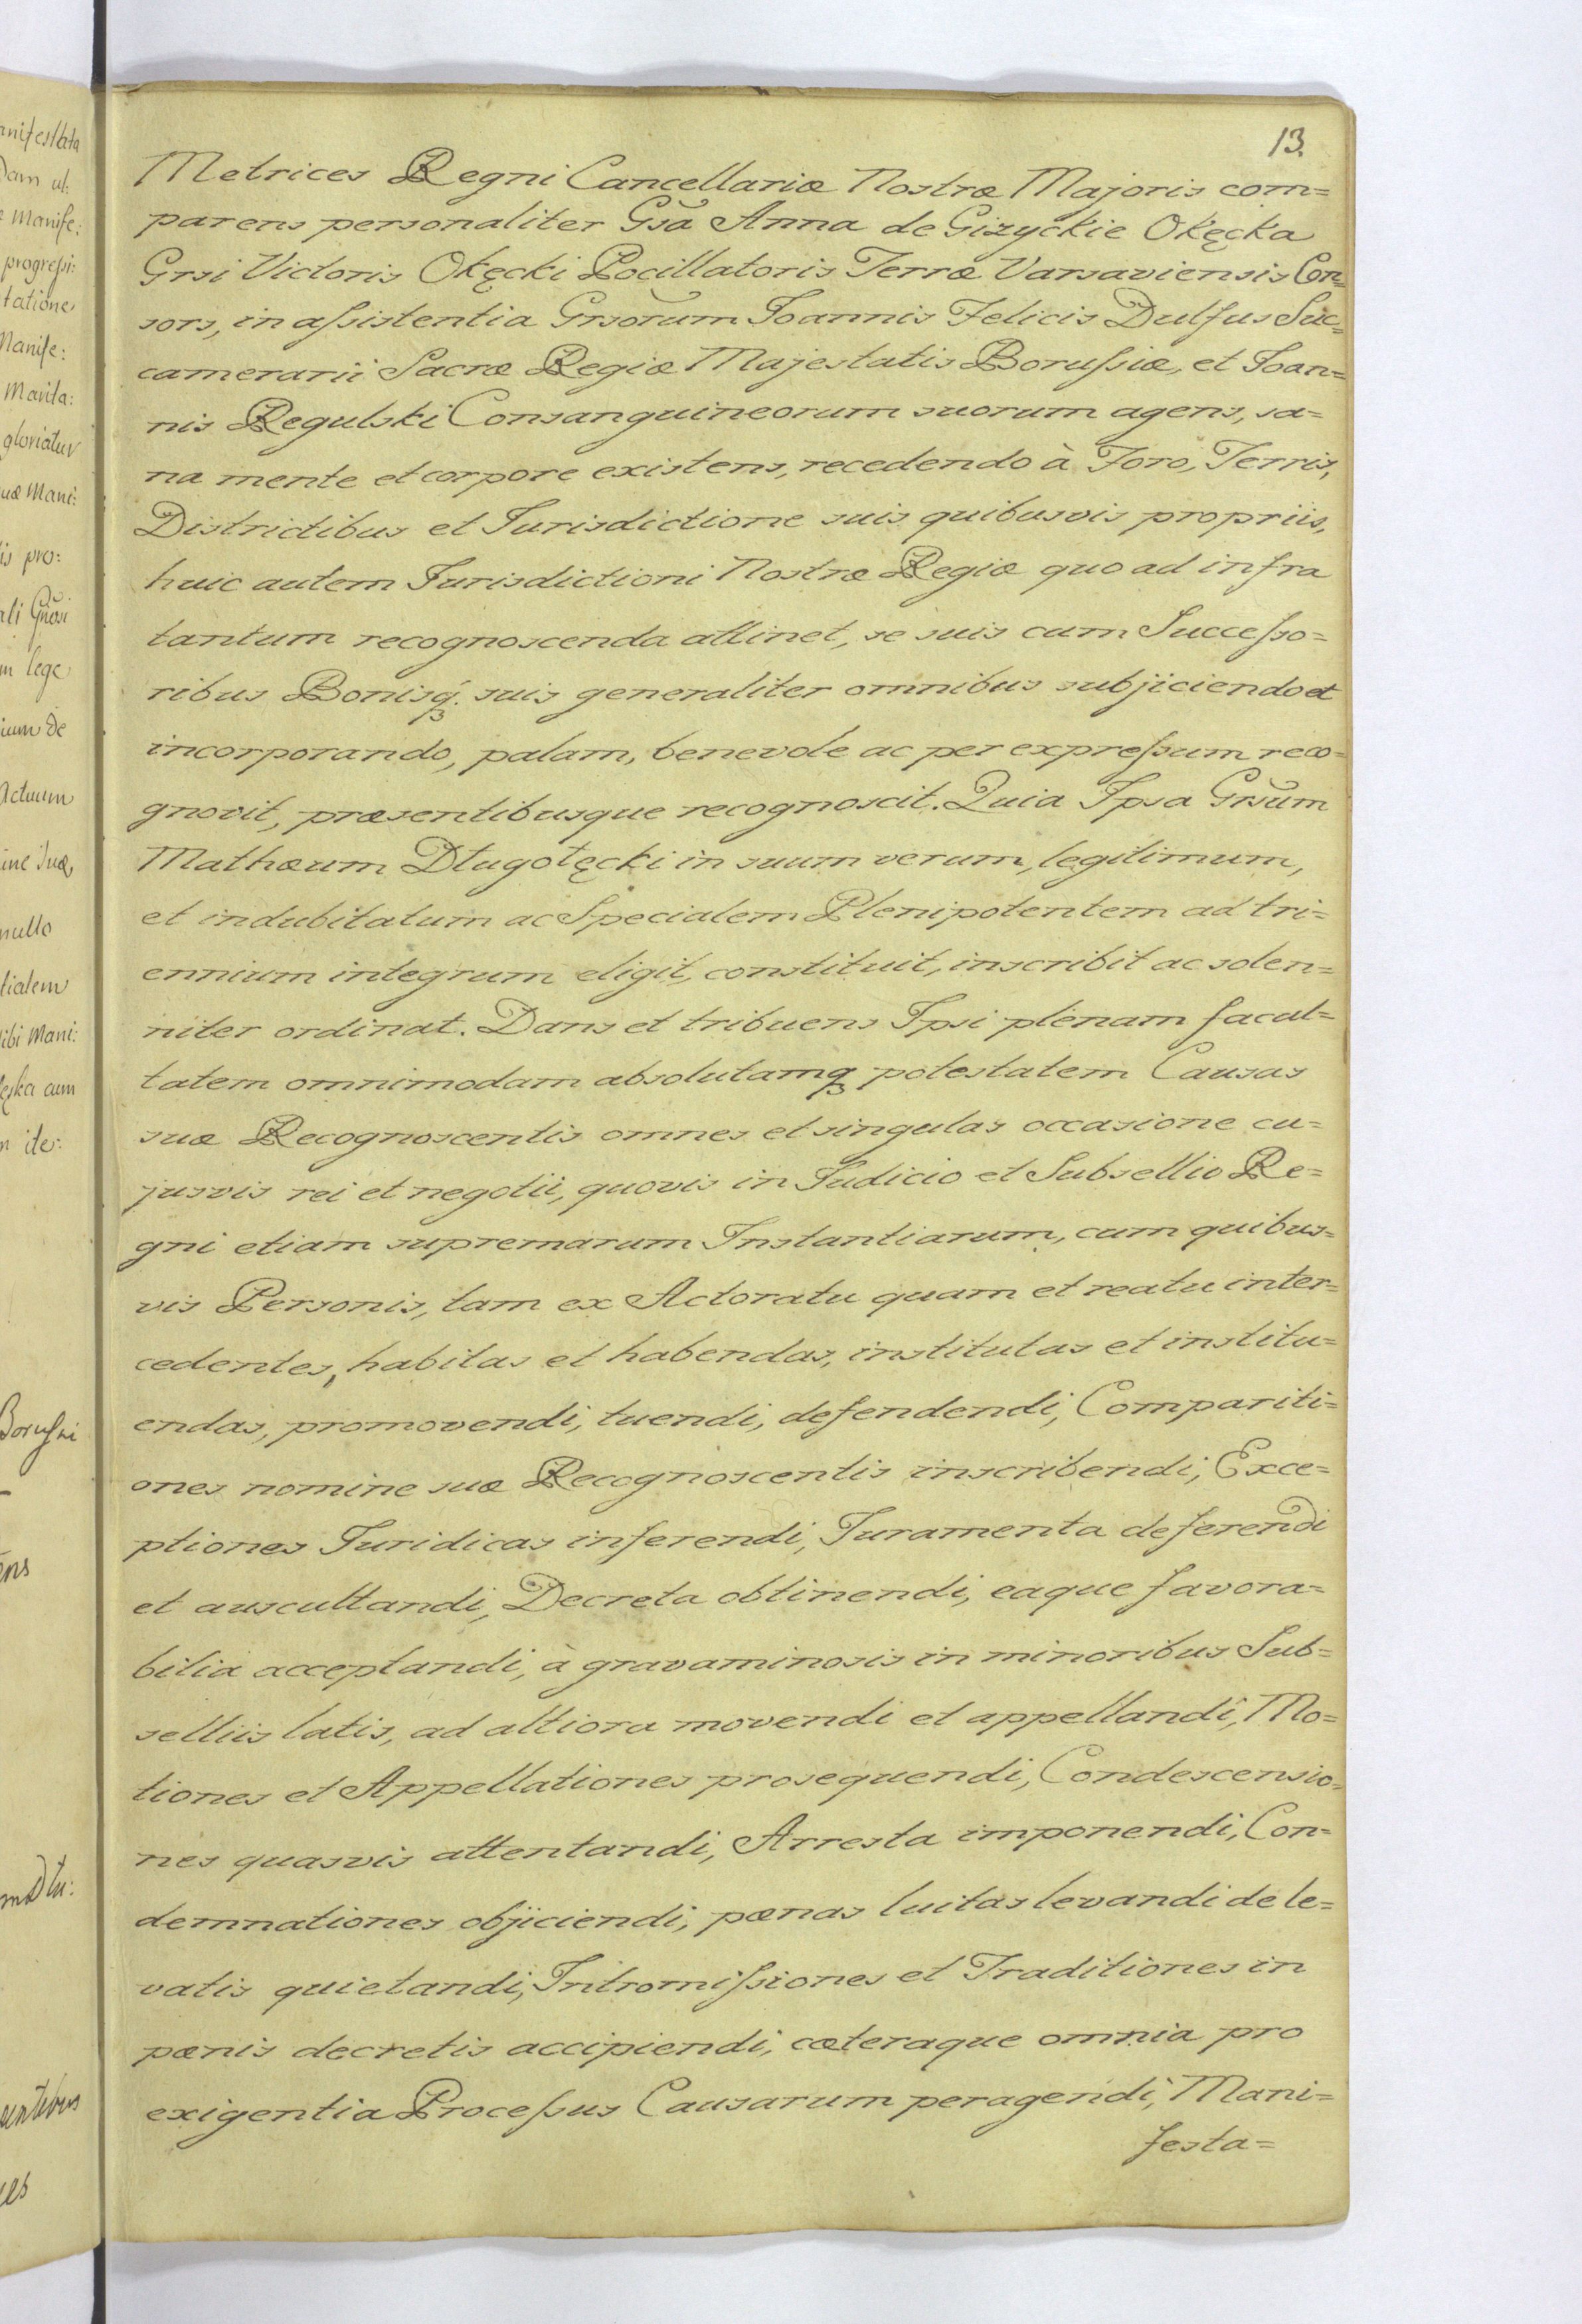 13.
Metrices Regni Cancellariæ Nostræ Majoris com=
parens personaliter Gsa Anna de Gizyckie Okęcka
Grsi Victoris Okęcki Pocillatoris Terræ Varsaviensis Con=
sors, in aſsistentia Grsorum Joannis Felicis Dulfus Suc=
camerarii Sacræ Regiæ Majestatis Boruſsiæ, et Joan=
nis Regulski Consanguineorum suorum agens, sa=
na mente et corpore existens, recedendo à Foro, Terris,
Districtibus et Jurisdictione suis quibusvis propriis,
huic autem Jurisdictioni Nostræ Regiæ quo ad infra
tantum recognoscenda attinet, se suis cum Succeſso=
ribus Bonisq́ꝫ. suis generaliter omnibus subjiciendo et
incorporando, palam, benevole ac per expreſsum reco=
gnovit, præsentibusque recognoscit. Quia Ipsa Grsum
Mathæum Długołęcki in suum verum, legitimum,
et indubitatum ac Specialem Plenipotentem ad tri=
ennium integrum eligit, constituit, inscribit ac solen=
niter ordinat. Dans et tribuens Ipsi plenam facul=
tatem omnimodam absolutamqꝫ potestatem Causas
suæ Recognoscentis omnes et singulas occasione cu=
jusvis rei et negotii, quovis in Judicio et Subsellio Re=
gni etiam supremarum Instantiarum, cum quibus=
vis Personis, tam ex Actoratu quam et reatu inter=
cedentes, habitas et habendas, institutas et institu=
endas, promovendi, tuendi, defendendi, Compariti=
ones nomine suæ Recognoscentis inscribendi, Exce=
ptiones Juridicas inferendi, Juramenta deferendi
et auscultandi, Decreta obtinendi, eaque favora=
bilia acceptandi, à gravaminosis in minoribus Sub=
selliis latis, ad altiora movendi et appellandi, Mo=
tiones et Appellationes prosequendi, Condescensio=
nes quasvis attentandi, Arresta imponendi, Con=
demnationes objiciendi, pœnas luitas levandi de le=
vatis quietandi, Intromiſsiones et Traditiones in
pœnis decretis accipiendi, cæteraque omnia pro
exigentia Proceſsus Causarum peragendi, Mani=
festa=